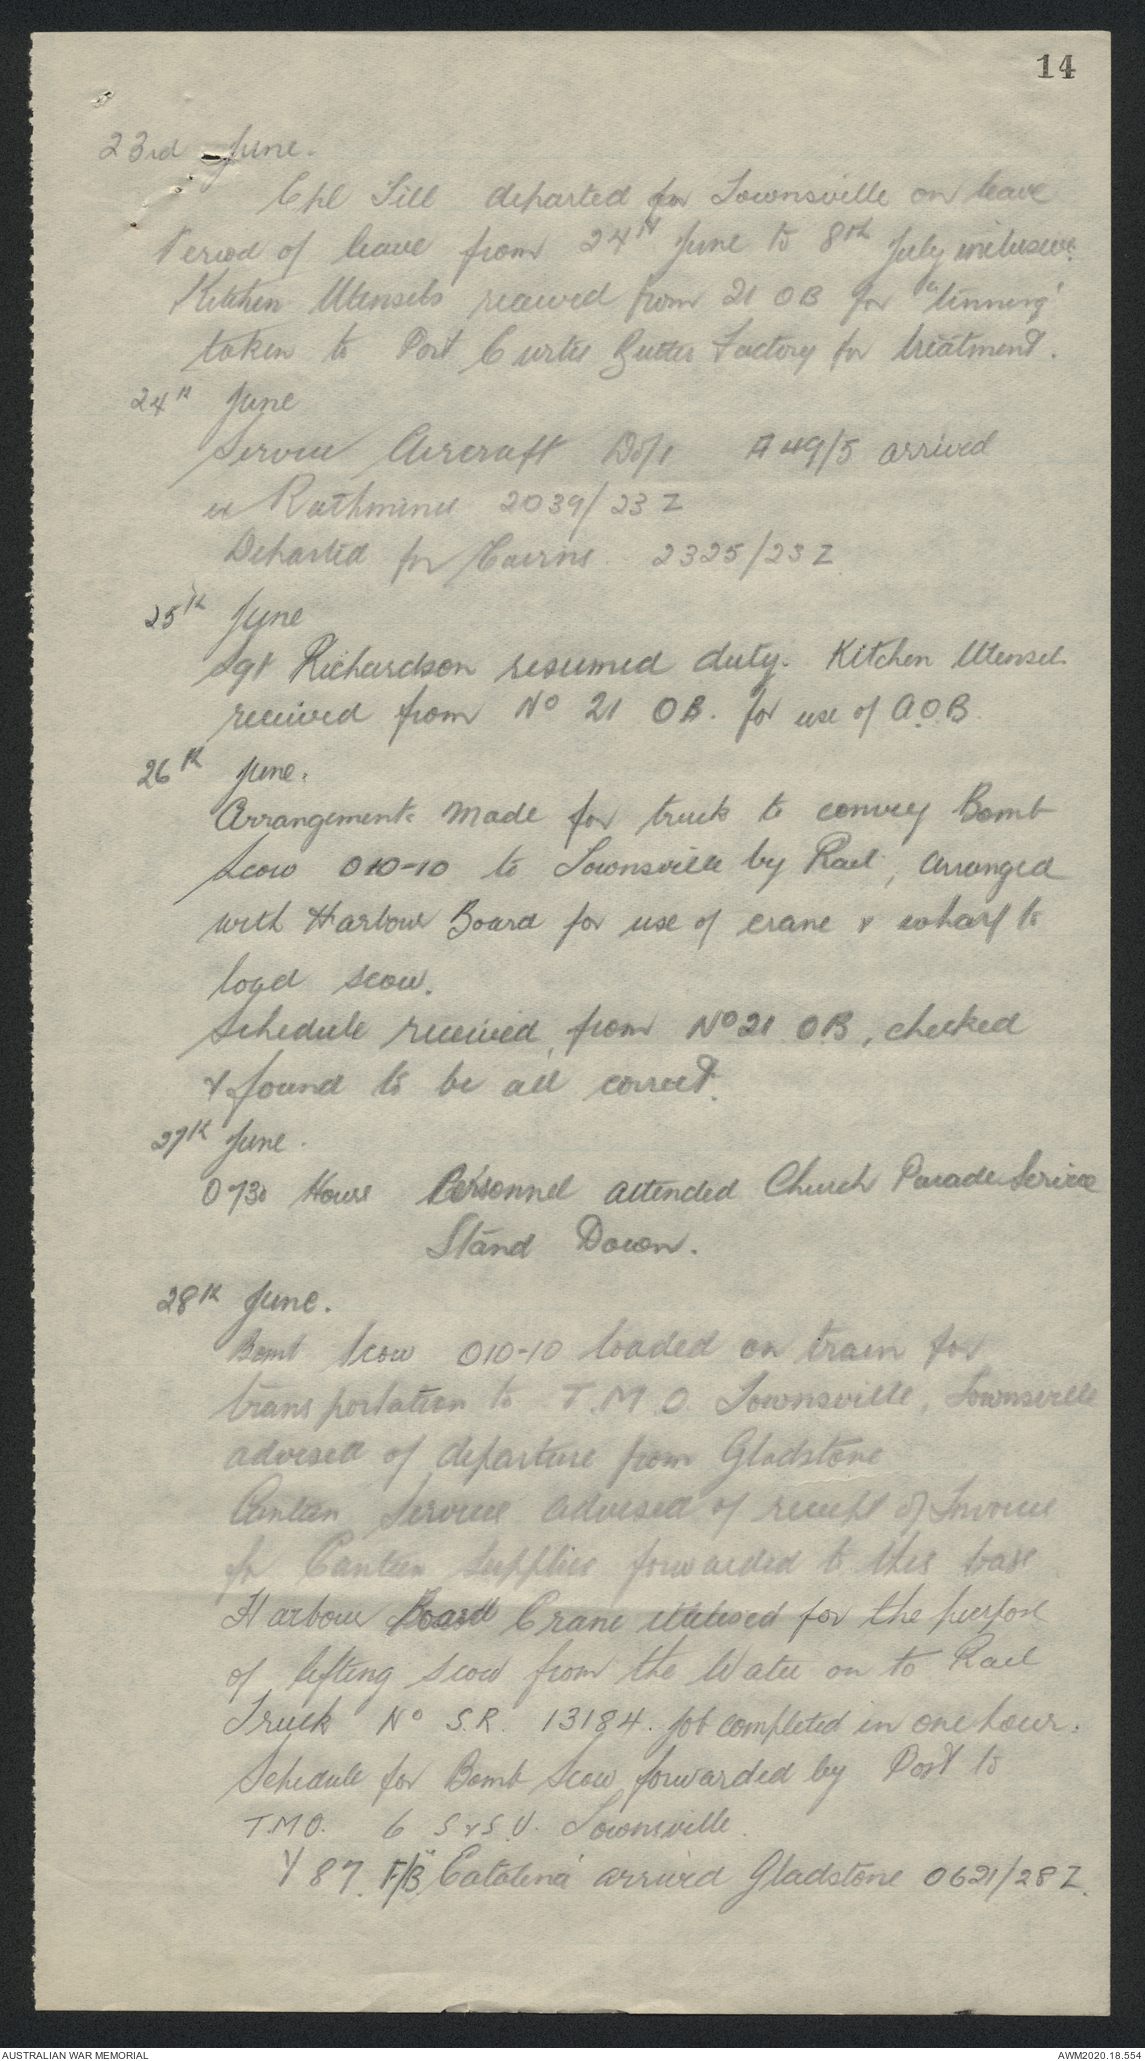 14
23rd June.
Cpl Till departed for Townsville on leave
Period of leave from 24th June to 8th July inclusive.
Kitchen Utensils received from 21 OB for "tinning"
taken to Port Curtis Butter Factory for treatment.
24th June
Service Aircraft Do/1 A49/5 arrived
ex Rathmines 2039/23Z
Departed for Cairns 2325/23Z
25th June
Sgt Richardson resumed duty. Kitchen Utensils
received from No 21 OB. for use of A.O.B.
26th June.
Arrangements made for truck to convey Bomb
Scow 010-10 to Townsville by Rail, Arranged
with Harbour Board for use of crane & wharf to
load scow.
Schedule received from No 21 OB, checked
& found to be all correct.
27th June.
0730 Hours Personnel attended Church Parade Service
Stand Down.
28th June.
Bomb Scow 010-10 loaded on train for
transportation to T.M.O. Townsville, Townsville
advised of departure from Gladstone
Canteen Services advised of receipt of Invoice
for Canteen supplies forwarded to this base
Harbour Board Crane utilised for the purpose
of lifting scow from the Water on to Rail
Truck No S.R. 13184. Job completed in one hour.
Schedule for Bomb Scow forwarded by Post to
T.M.O. 6 S&S.U. Townsville.
Y 87. F/B. "Catalina" arrived Gladstone 0621/28Z.
AUSTRALIAN WAR MEMORIAL
AWM2020.18.554